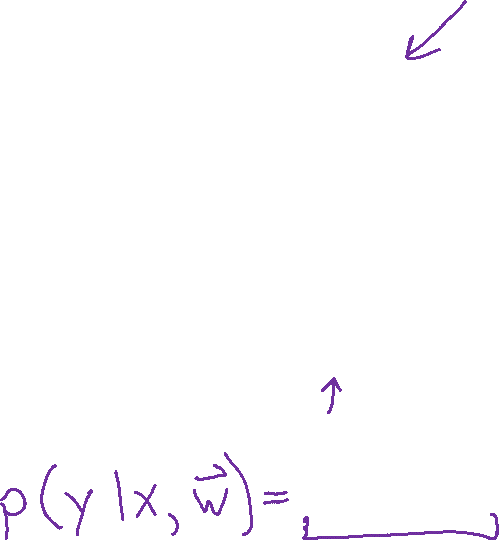 p(y|x, w⃗) =